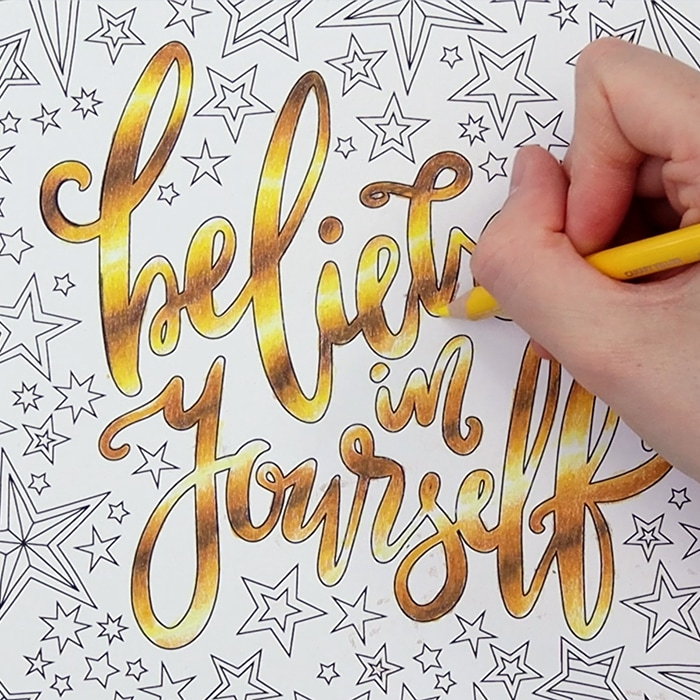 believ
in
yourself